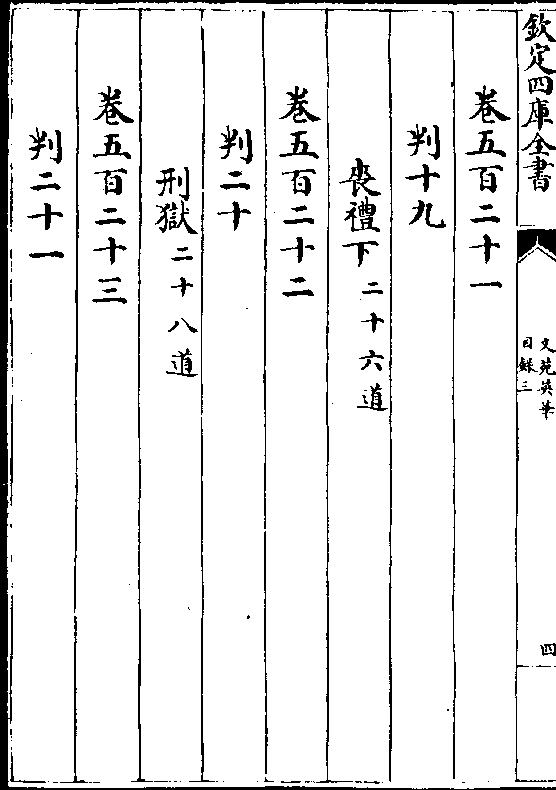 欽定四庫全書
文苑英華
目錄三
四
卷五百二十一
判十九
喪禮下二十六道
卷五百二十二
判二十
刑獄二十八道
卷五百二十三
判二十一